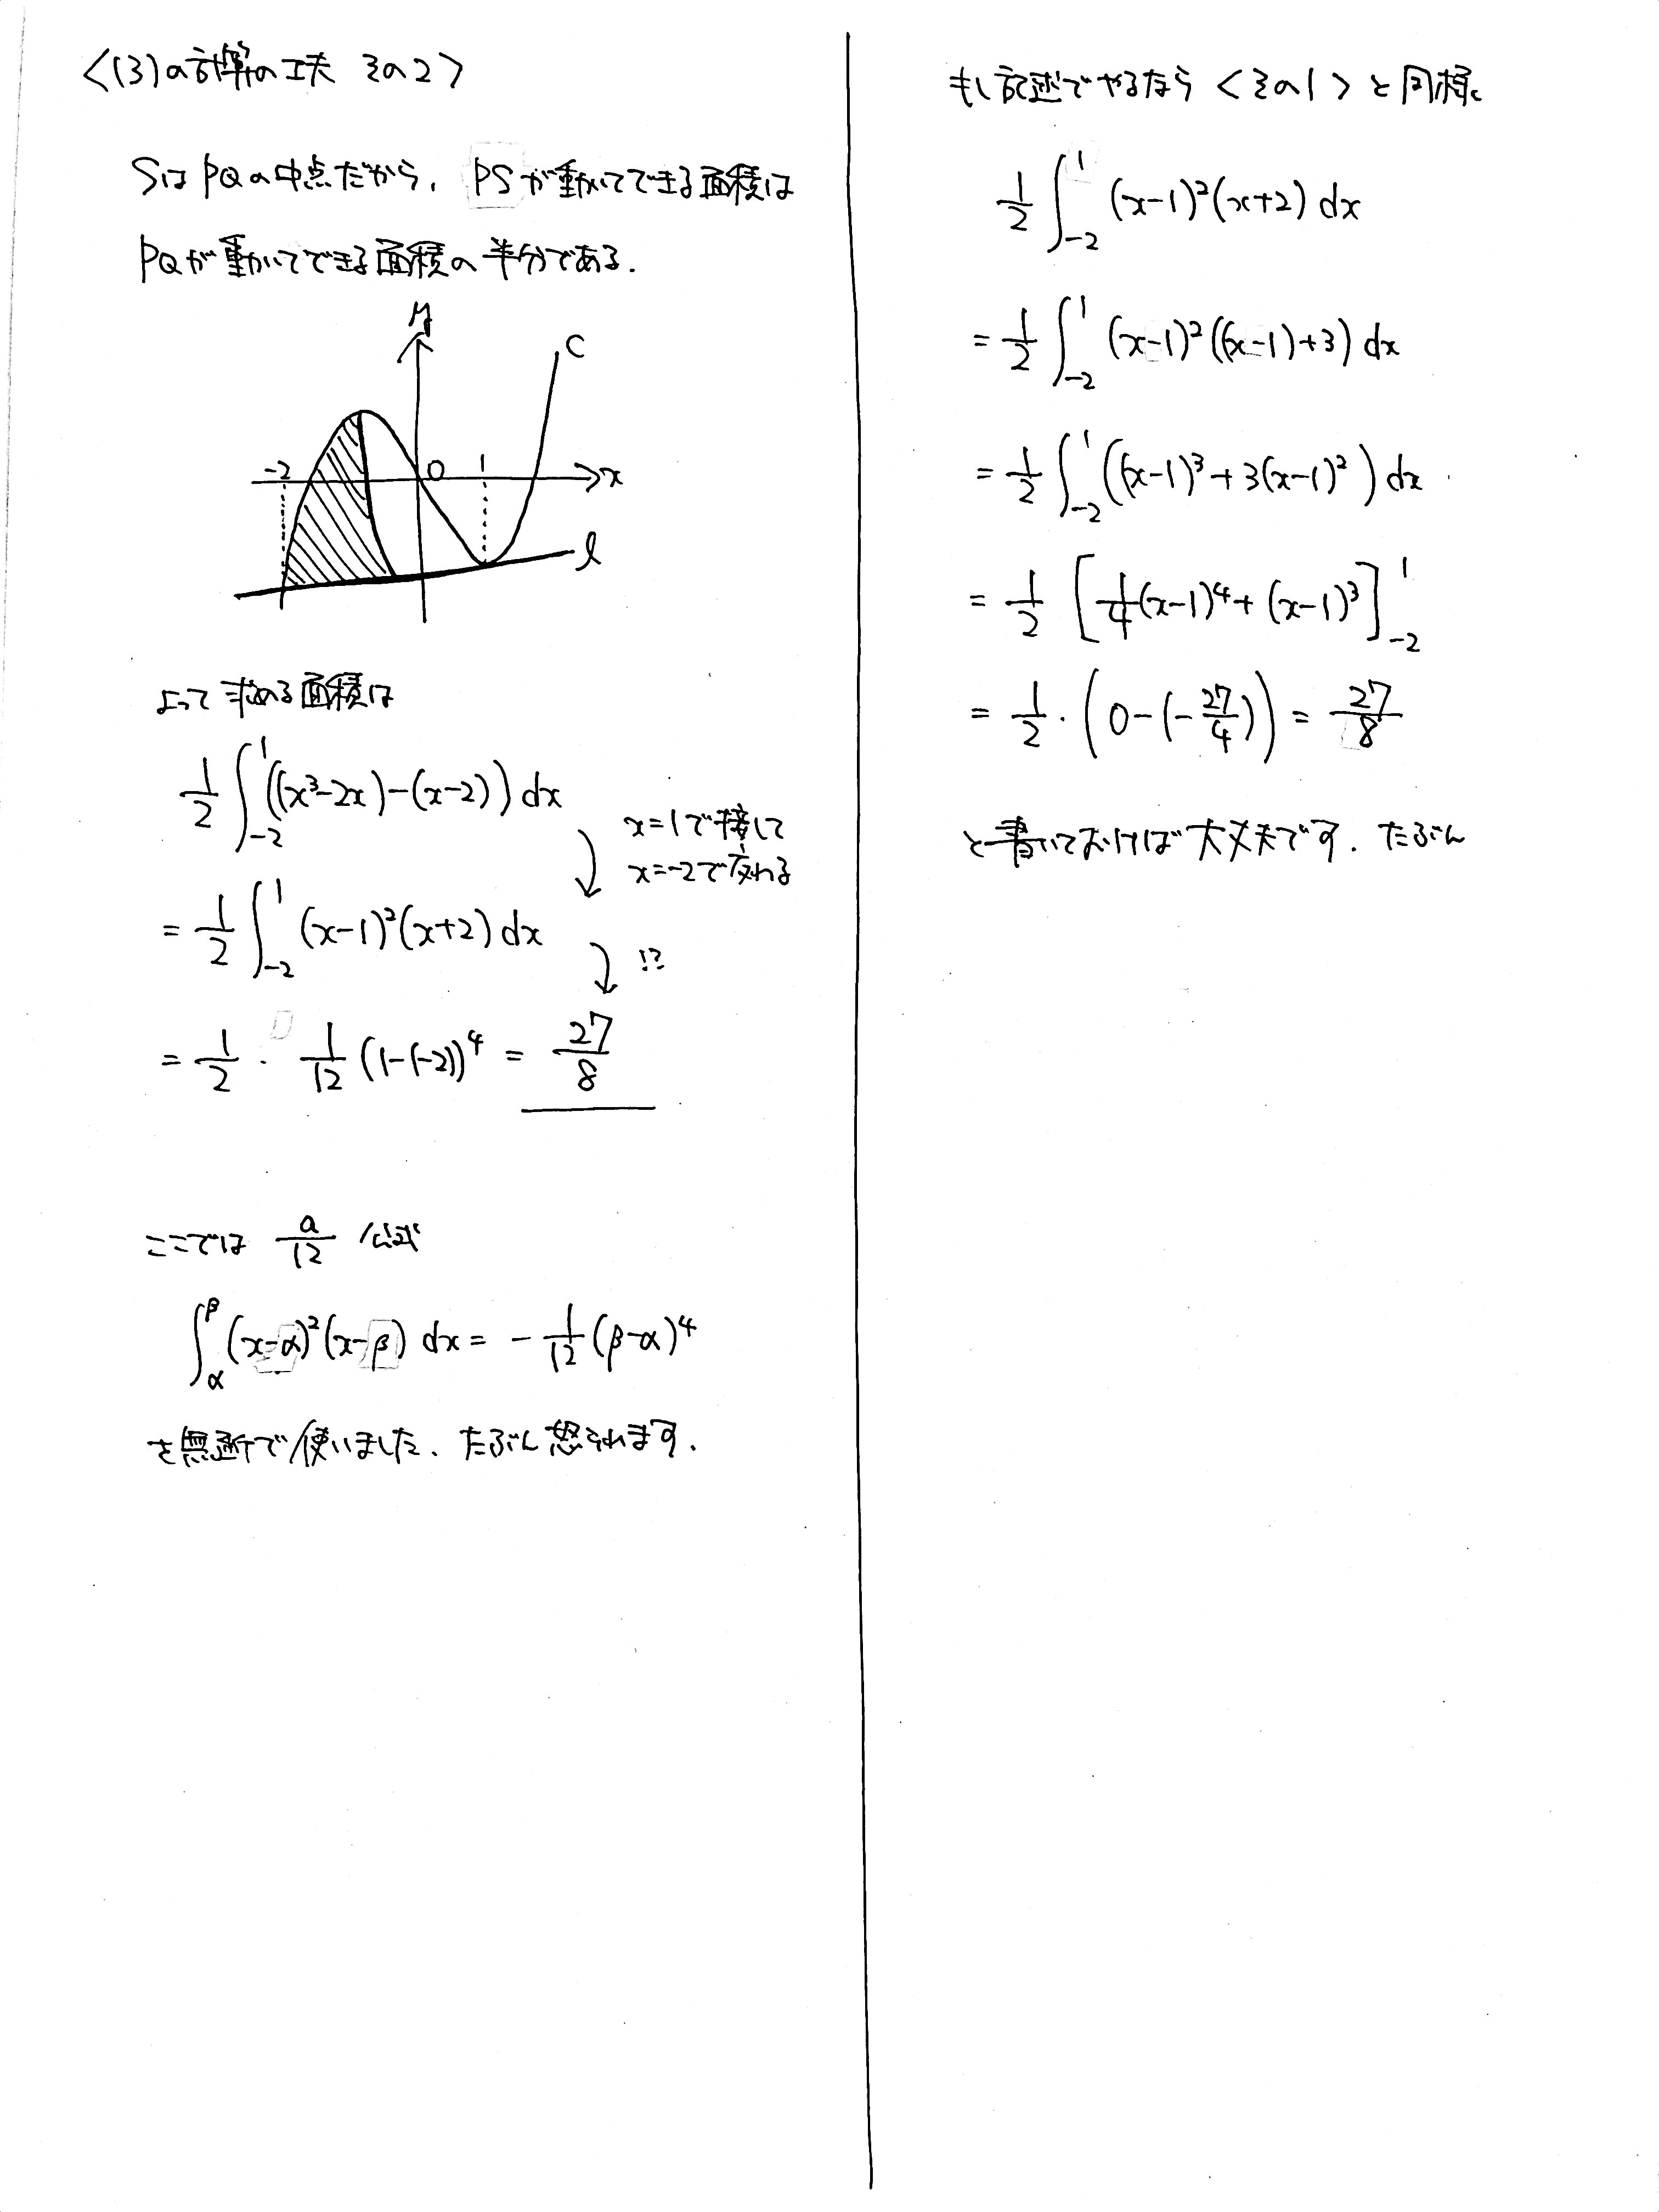 <(3)の計算の工夫 その2>
SはPQの中点だから、PSが動いてできる面積は
PQが動いてできる面積の半分である.
y
C
-2 0 1 x
l
よって求める面積は
1/2 ∫_{-2}^{1} ((x³-2x)-(x-2)) dx
x=1で接して
x=-2で交わる
= 1/2 ∫_{-2}^{1} (x-1)²(x+2) dx
!?
= 1/2 · 1/12 (1-(-2))⁴ = 27/8
ここでは a/12 公式
∫_{α}^{β} (x-α)²(x-β) dx = - 1/12 (β-α)⁴
を無断で使いました、たぶん怒られます.
もし記述でやるなら <その1> と同様に
1/2 ∫_{-2}^{1} (x-1)²(x+2) dx
= 1/2 ∫_{-2}^{1} (x-1)²((x-1)+3) dx
= 1/2 ∫_{-2}^{1} ((x-1)³+3(x-1)²) dx
= 1/2 [1/4(x-1)⁴+(x-1)³]_{-2}^{1}
= 1/2 · (0-(-27/4)) = 27/8
と書いておけば大丈夫です. たぶん